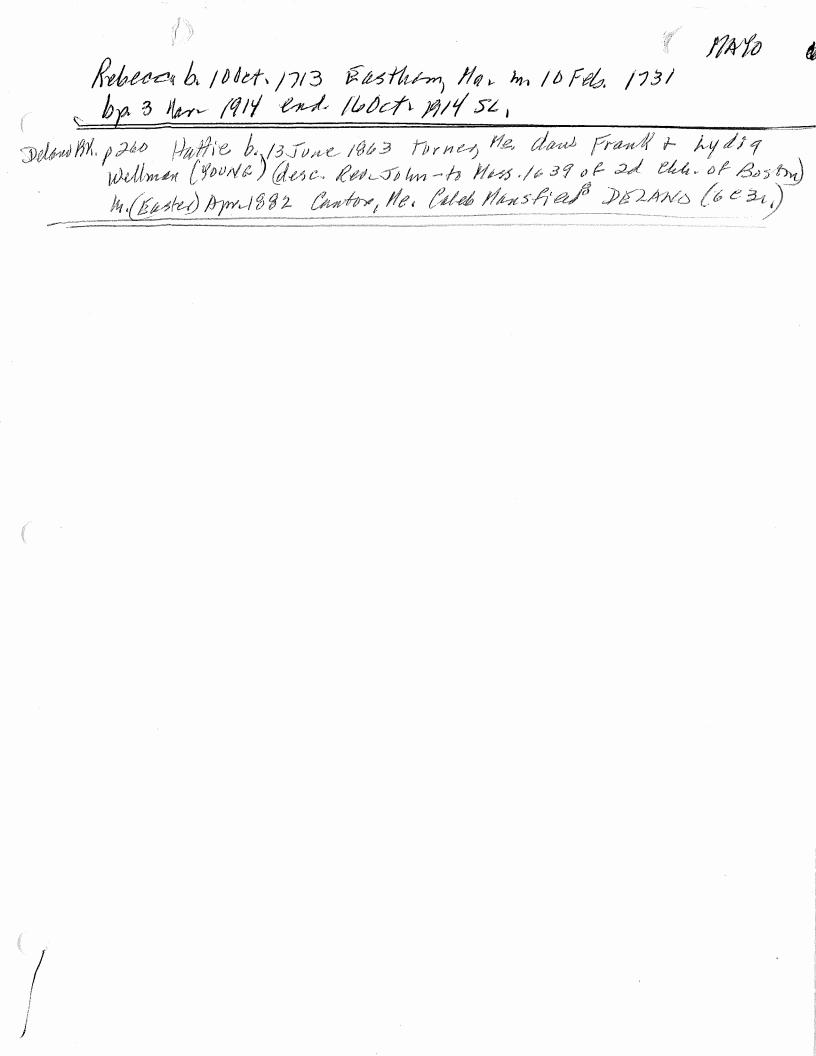 MAYO
Rebecca b. 10 Oct. 1713 Eastham, Ma. m. 10 Feb. 1731
bp. 3 Mar 1914 end. 16 Oct. 1914 SL.
Delano BK. p260 Hattie b. 13 June 1863 Turner, Me. dau Frank & Lydia
Wellman (YOUNG) (desc. Rev. John - to Mass. 1639 of 2d Chh. of Boston)
m. (Easter) Apr. 1882 Canton, Me. Caleb Mansfield DELANO